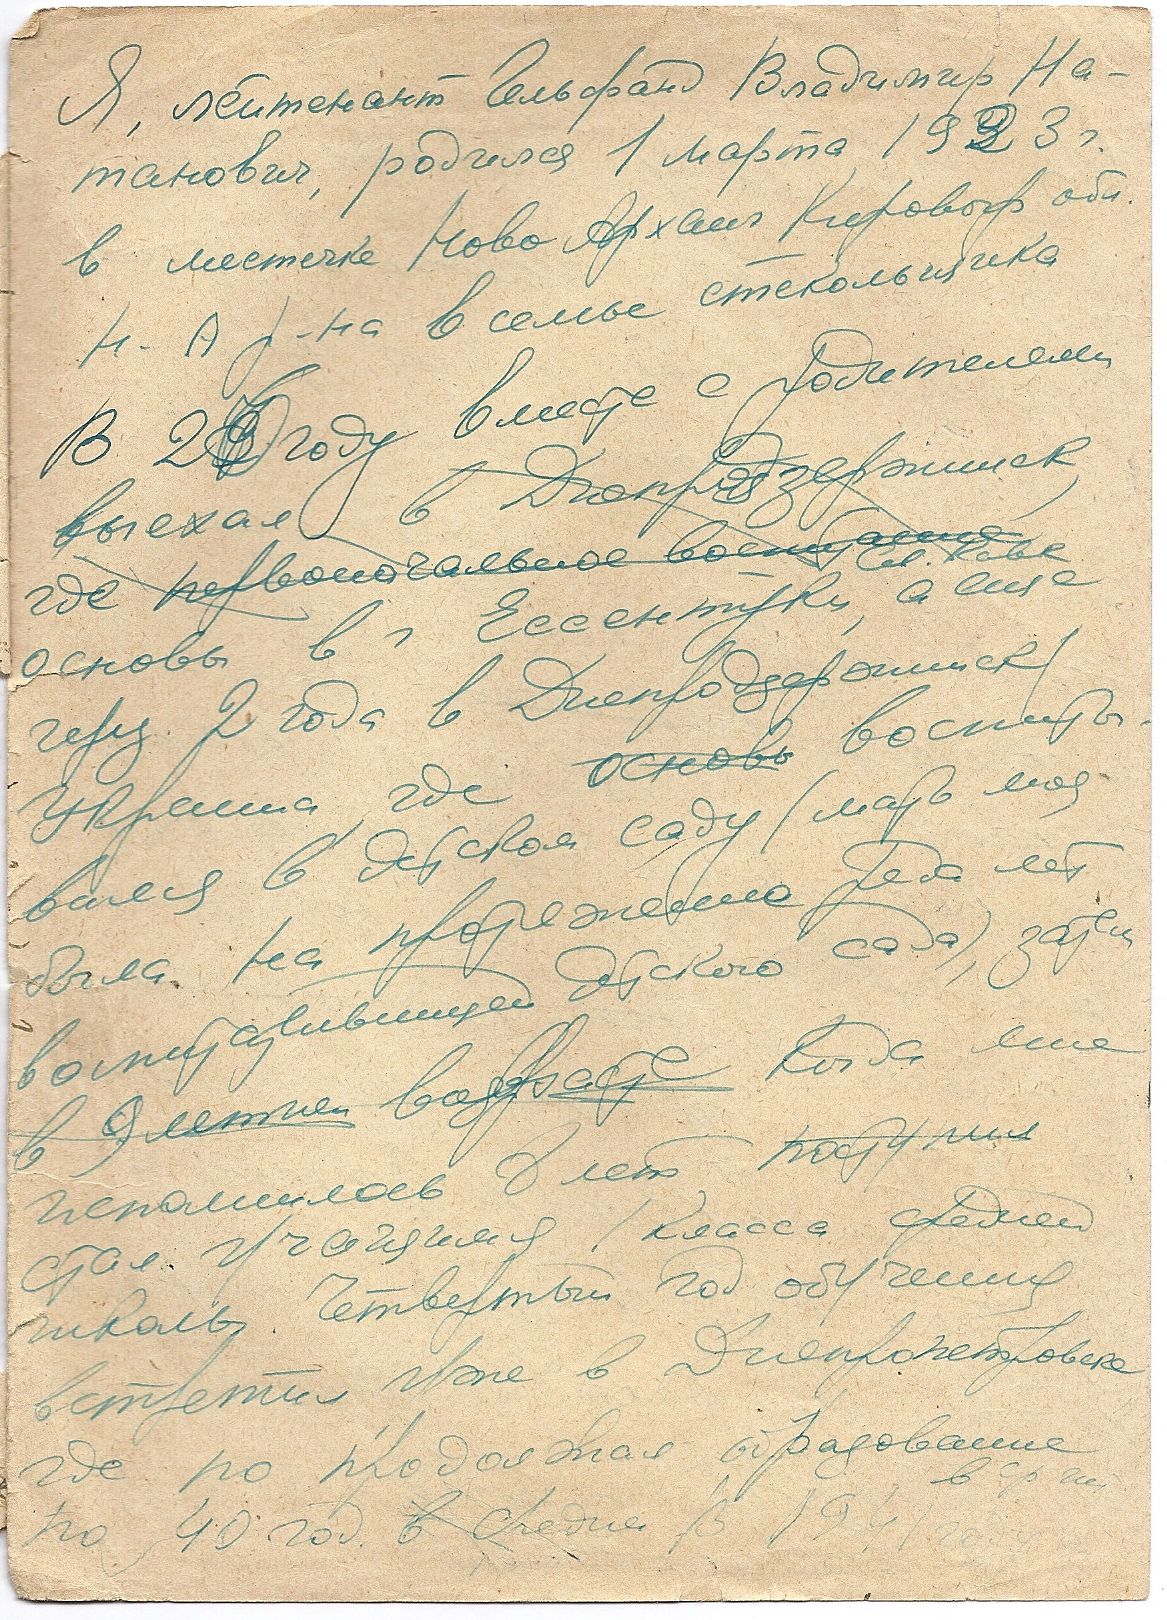 Я, лейтенант Гельфанд Владимир На-
танович, родился 1 марта 1923 г.
в местечке Ново Архан Кировогр обл.
Н. А р-на в семье стекольщика
В 2 году вместе с родителями
выехал в Днепродзержинск,
где первоначальное воспитание
Сев. Кавк
основы в г Ессентуки, а еще
через 2 года в Днепродзержинск/
Украина, где основы воспиты-
вался в детском саду (мать моя
была на протяжении ряда лет
воспитательницей детского сада), затем
в 9 летнем возрасте Когда мне
исполнилось 8 лет поступил
стал учащимся 1 класса средней
школы. Четвертый год обучения
встретил уже в Днепропетровске
где по продолжал образование
по 40 год. в средней В 1941